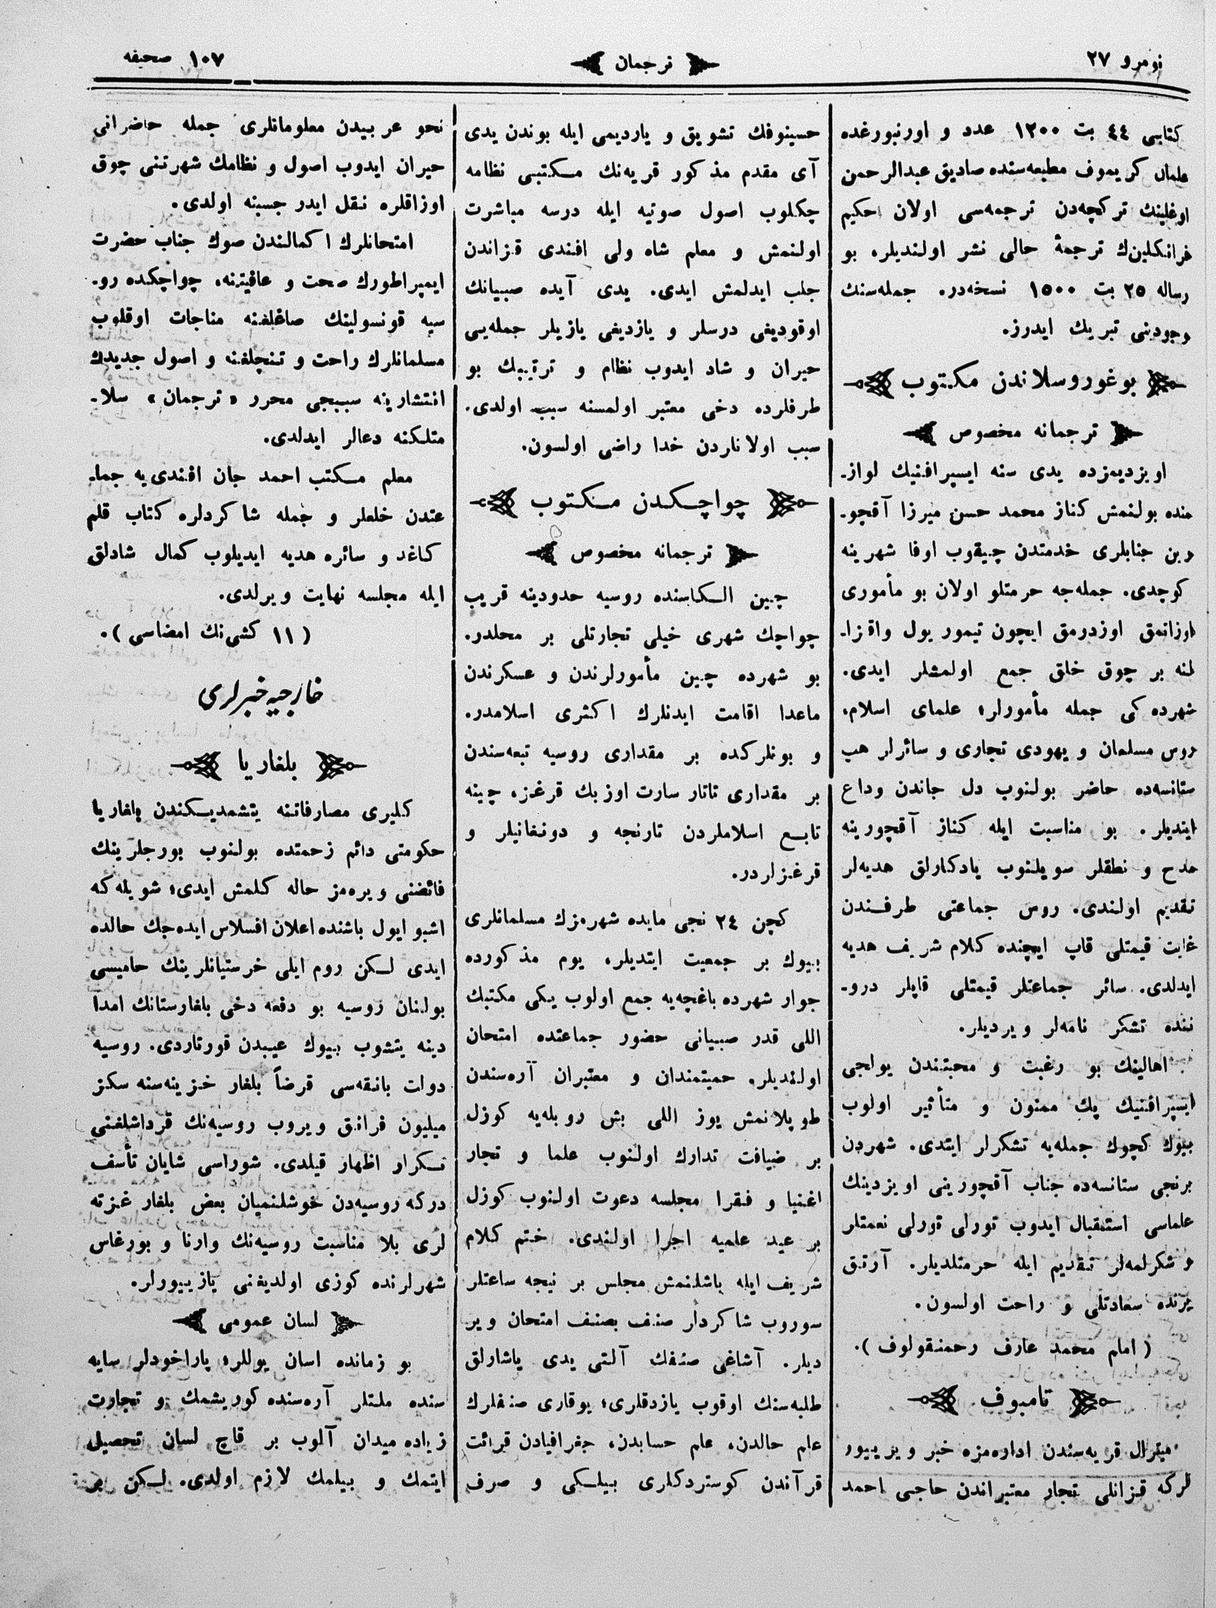 نومرو ٢٧
ترجمان
١٠٧ صحيفه
كتابى ٤٤ بت ١٢٠٠ عدد و اورنبورغده
علمان كريموف مطبعه‌سنده صاديق عبدالرحمن
اوغلينك تركچه‌دن ترجمه‌سى اولان حكيم
فرانكلين‌ك ترجمۀ حالى نشر اولنديلر. بو
رساله ٢٥ بت ١٥٠٠ نسخه‌در. جمله‌سنك
وجودينى تبريك ايدرز.
بوغوروسلاندن مكتوب
ترجمانه مخصوص
اويزديمزده يدى سنه ايسپرافنيك لواز-
منده بولنمش كناز محمد حسن ميرزا آقچو-
رين جنابلرى خدمتدن چيقوب اوفا شهرينه
كوچدى. جمله‌جه حرمتلو اولان بو مأمورى
اوزاتمق اوزدرمق ايچون تيمور يول واقزا-
لنه بر چوق خلق جمع اولمشلر ايدى.
شهرده‌كى جمله مأمورلر؛ علماى اسلام،
روس مسلمان و يهودى تجارى و سائرلر هپ
ستانسه‌ده حاضر بولنوب دل جاندن وداع
ايتديلر. بو مناسبت ايله كناز آقچورينه
مدح و نطقلر سويلنوب يادكارلق هديه‌لر
تقديم اولندى. روس جماعتى طرفندن
غايت قيمتلى قاپ ايچنده كلام شريف هديه
ايدلدى. سائر جماعتلر قيمتلى قاپلر درو-
ننده تشكر نامه‌لر ويرديلر.
اهالينك بو رغبت و محبتندن يولجى
ايسپرافنيك پك ممنون و متأثير اولوب
بيوك كچوك جمله‌يه تشكرلر ايتدى. شهردن
برنجى ستانسه‌ده جناب آقچورينى اويزدينك
علماسى استقبال ايدوب تورلى تورلى نعمتلر
و شكرلمه‌لر تقديم ايله حرمتلديلر. آرتق
يرنده سعادتلى و راحت اولسون.
( امام محمد عارف رحمنقولوف ).
تامبوف
ميترال قريه‌سندن اداره‌مزه خبر ويرييور
لركه قزانلى تجار معتبراندن حاجى احمد
حسينوفك تشويق و يارديمى ايله بوندن يدى
آى مقدم مذكور قريه‌نك مكتبى نظامه
چكلوب اصول صوتيه ايله درسه مباشرت
اولنمش و معلم شاه ولى افندى قزاندن
جلب ايدلمش ايدى. يدى آيده صبيانك
اوقوديغى درسلر و يازديغى يازيلر جمله‌يى
حيران و شاد ايدوب نظام و ترتيبك بو
طرفلرده دخى معتبر اولمسنه سبب اولدى.
سبب اولانلردن خدا راضى اولسون.
چواچكدن مكتوب
ترجمانه مخصوص
چين الكاسنده روسيه حدودينه قريب
چواچك شهرى خيلى تجارتلى بر محلدر.
بو شهرده چين مأمورلرندن و عسكرندن
ماعدا اقامت ايدنلرك اكثرى اسلامدر.
و بونلركده بر مقدارى روسيه تبعه‌سندن
بر مقدارى تاتار سارت اوزبك قرغز، چينه
تابع اسلاملردن تارنجه و دونغانيلر و
قرغزلردر.
كچن ٢٤ نجى مايده شهره‌زك مسلمانلرى
بيوك بر جمعيت ايتديلر. يوم مذكورده
جوار شهرده باغچه‌يه جمع اولوب يكى مكتبك
اللى قدر صبيانى حضور جماعتده امتحان
اولنديلر. حميتمندان و معتبران آره‌سندن
طوپلانمش يوز اللى بش روبله‌يه كوزل
بر ضيافت تدارك اولنوب علما و تجار
اغنيا و فقرا مجلسه دعوت اولنوب كوزل
بر عيد علميه اجرا اولندى. ختم كلام
شريف ايله باشلنمش مجلس بر نيجه ساعتلر
سوروب شاكردلر صنف بصنف امتحان وير
ديلر. آشاغى صنفك آلتى يدى ياشارلق
طلبه‌سنك اوقوب يازدقلرى؛ يوقارى صنفلرك
علم حالدن، علم حسابدن، جغرافيادن قرائت
قرآندن كوستردكلرى بيلكى و صرف
نحو عربيدن معلوماتلرى جمله حاضرانى
حيران ايدوب اصول و نظامك شهرتنى چوق
اوزاقلره نقل ايدر جسبنه اولدى.
امتحانلرك اكمالندن صوك جناب حضرت
ايمپراطورك صحت و عافيتنه، چواچكده رو-
سيه قونسولينك صاغلغنه مناجات اوقلوب
مسلمانلرك راحت و تنچلغنه و اصول جديدك
انتشارينه سببجى محرر « ترجمان » سلا-
متلكنه دعالر ايدلدى.
معلم مكتب احمد جان افندى‌يه جما-
عتدن خلعلر و جمله شاكردلره كتاب قلم
كاغد و سائره هديه ايديلوب كمال شادلق
ايله مجلسه نهايت ويرلدى.
( ١١ كشى‌نك امضاسى ).
خارجيه خبرلرى
بلغاريا
كليرى مصارفاتنه يتشمديكندن بلغاريا
حكومتى دائم زحمتده بولنوب بورجلرينك
فائضنى ويره‌مز حاله كلمش ايدى؛ شويله‌كه
اشبو ايول باشنده اعلان افلاس ايده‌جك حالده
ايدى لكن روم ايلى خرستيانلرينك حاميسى
بولنان روسيه بو دفعه دخى بلغارستانك امدا
دينه يتشوب بيوك عيبدن قورتاردى. روسيه
دولت بانقه‌سى قرضاً بلغار خزينه‌سنه سكز
ميليون فرانق ويروب روسيه‌نك قرداشلغنى
تكرار اظهار قيلدى. شوراسى شايان تأسف
دركه روسيه‌دن خوشلنميان بعض بلغار غزته
لرى بلا مناسبت روسيه‌نك وارنا و بورغاس
شهرلرنده كوزى اولديغنى يازييورلر.
لسان عمومى
بو زمانده اسان يوللر؛ پاراخودلر سايه
سنده ملتلر آره‌سنده كوريشمك و تجارت
زياده ميدان آلوب بر قاچ لسان تحصيل
ايتمك و بيلمك لازم اولدى. لكن بر